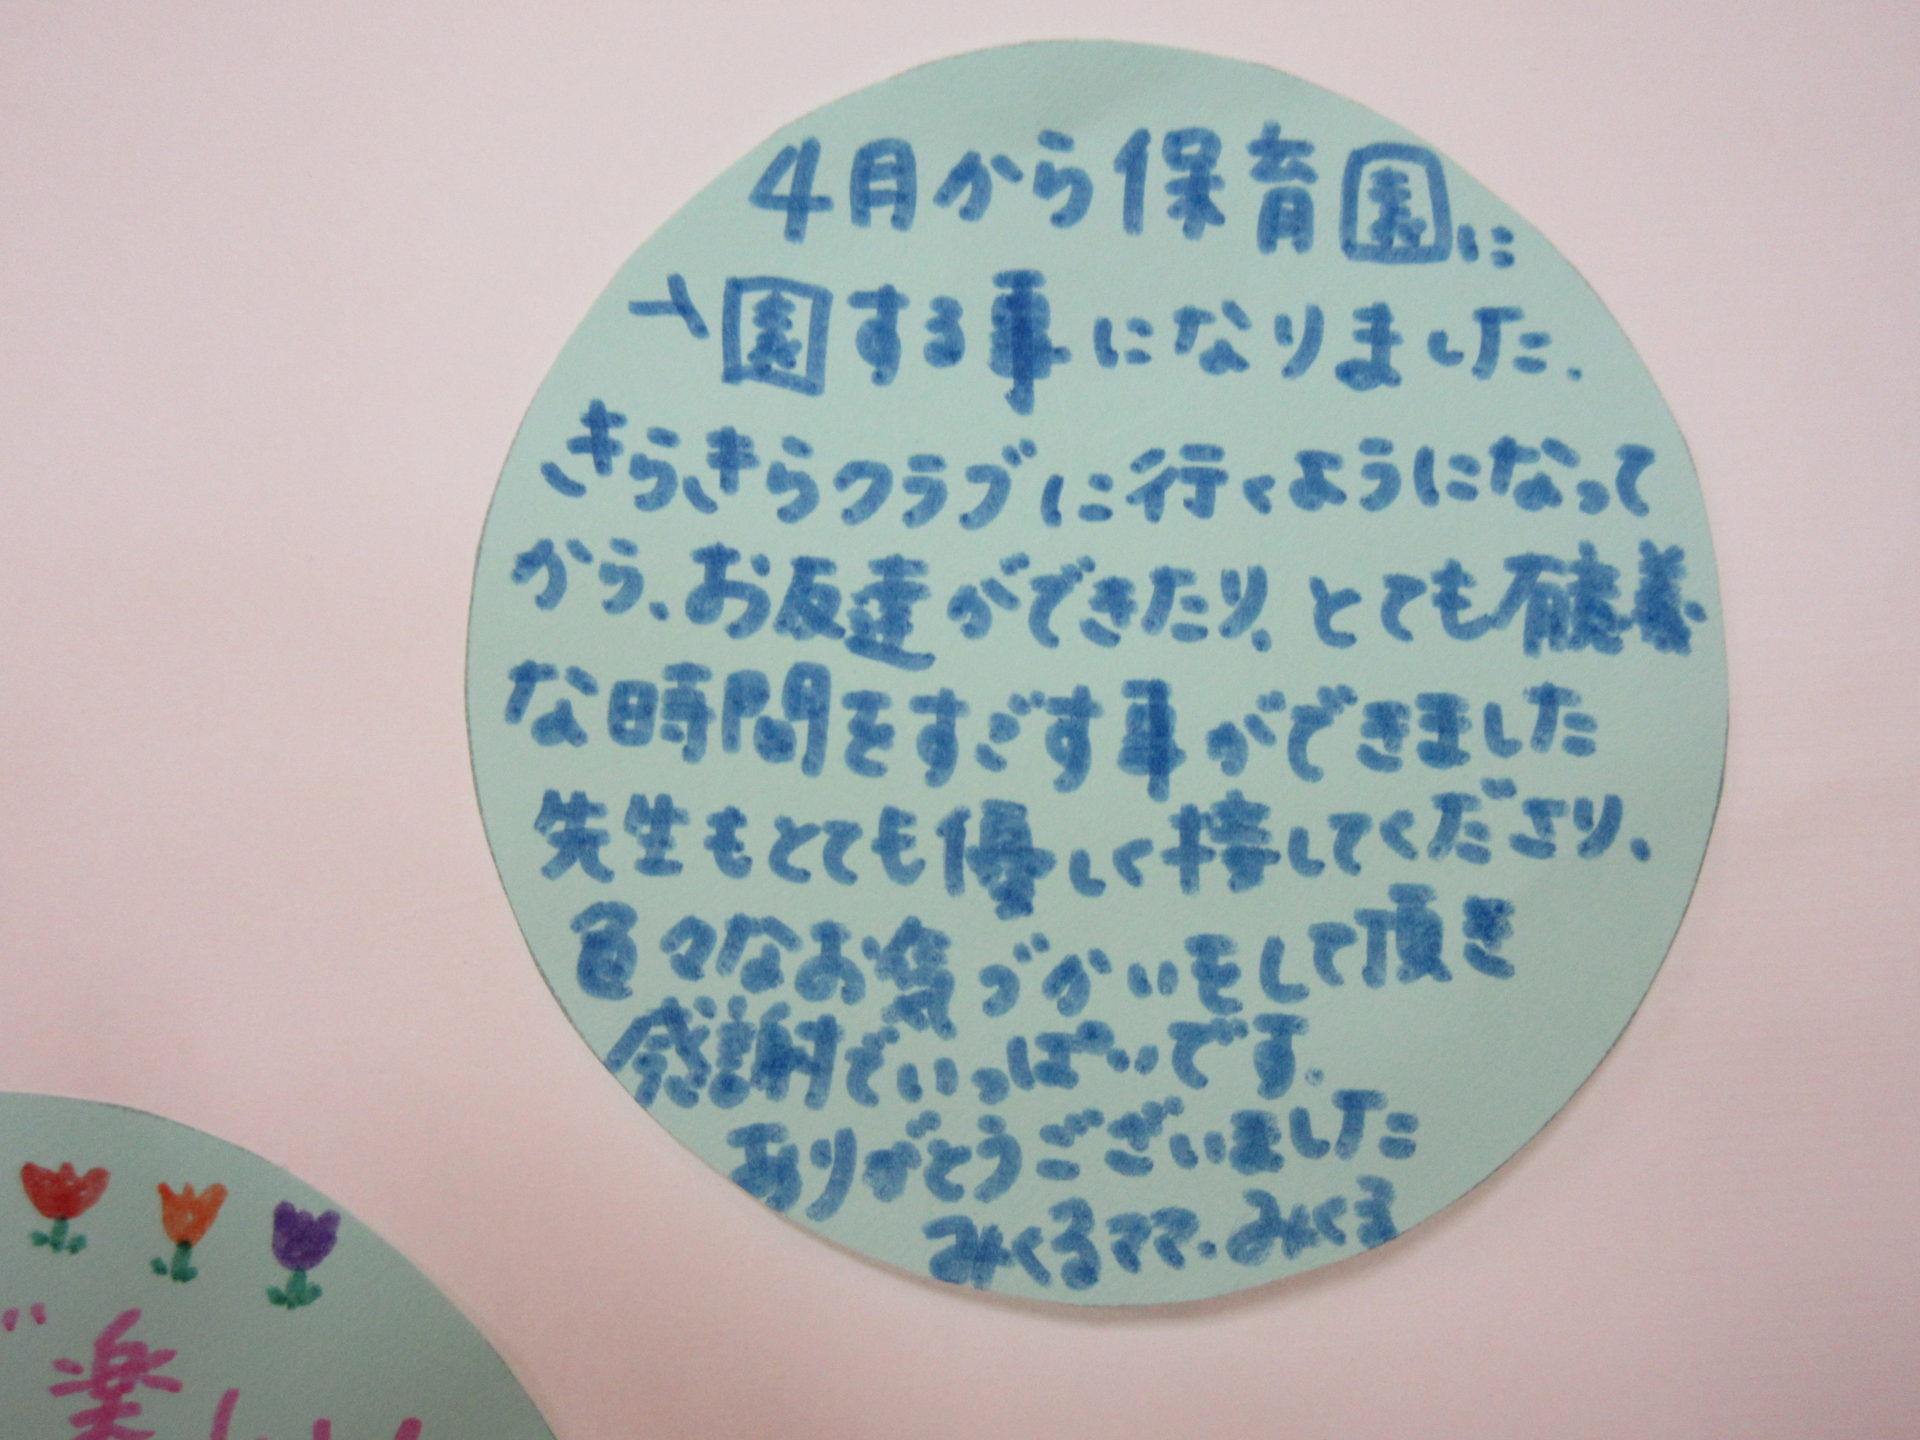 4月から保育園に
入園する事になりました.
きらきらクラブに行くようになって
から、お友達ができたり、とても有意義
な時間をすごす事ができました
先生もとても優しく接してくださり、
色々なお気づかいをして頂き
感謝でいっぱいです。
ありがとうございました
みくるママ.みくる
楽しい